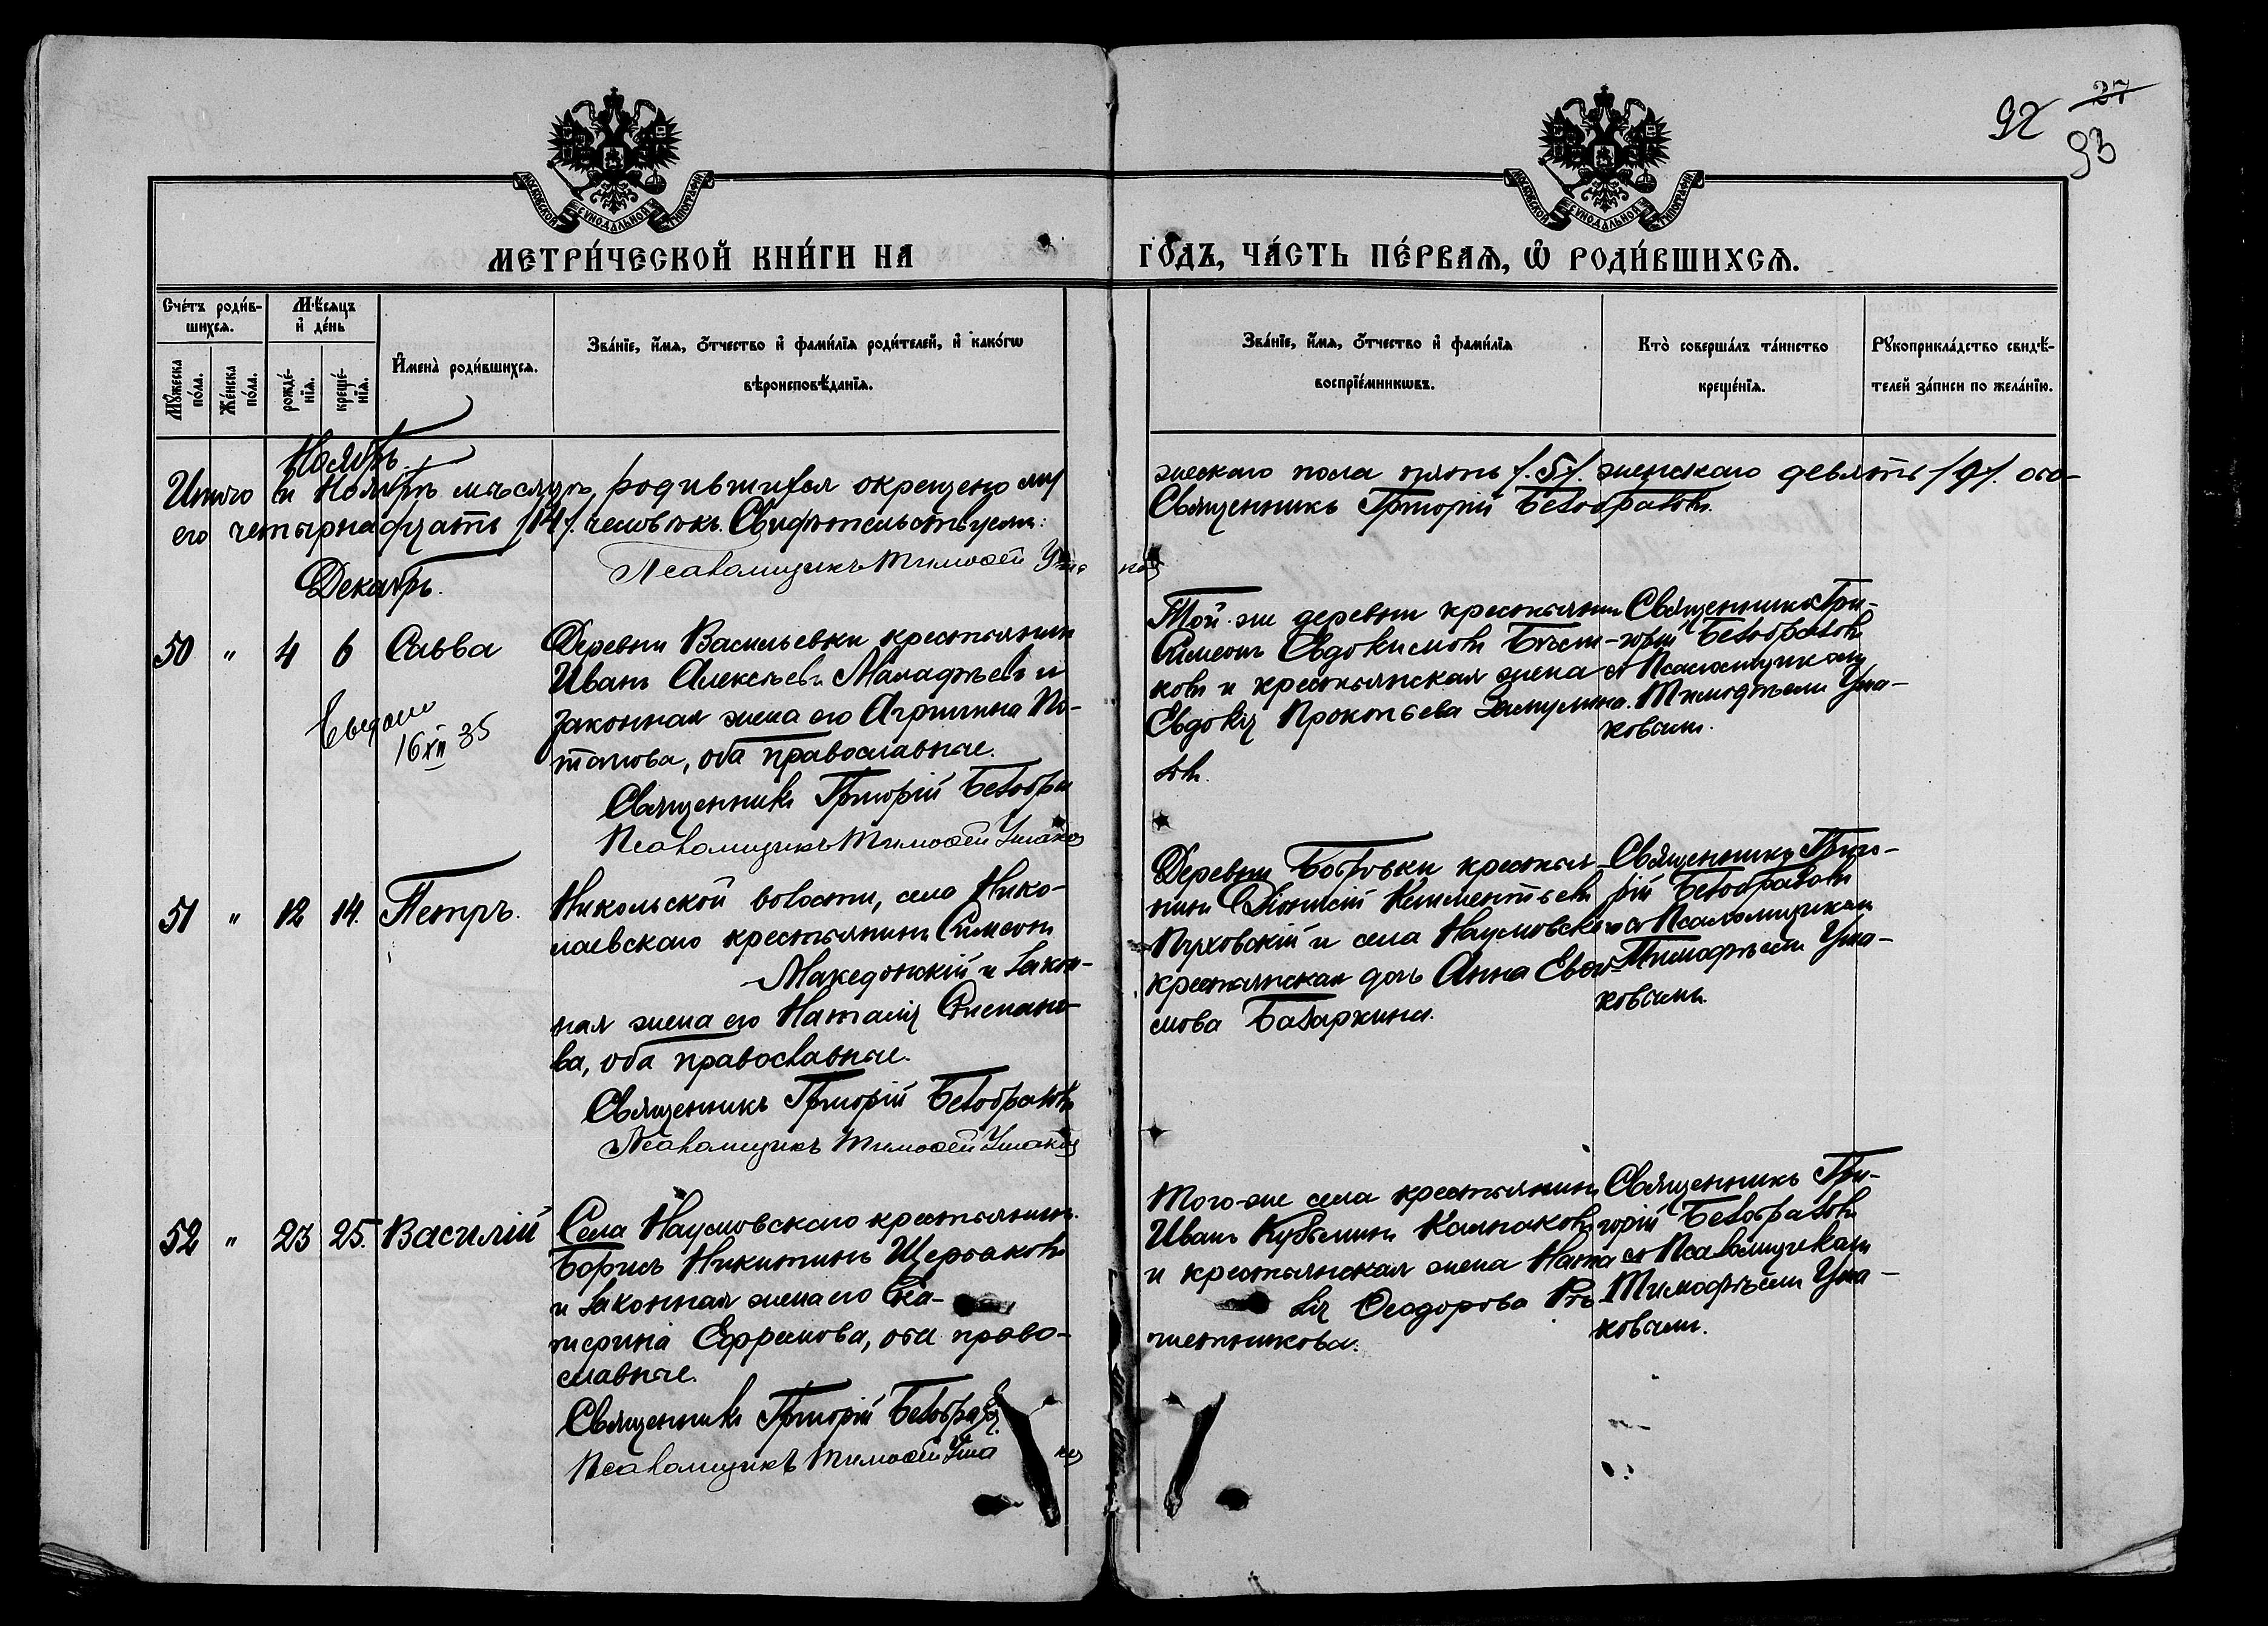 92 27
93
МОСКОВСКОЙ СУНОДАЛЬНОЙ ТИПОГРАФІИ
МОСКОВСКОЙ СУНОДАЛЬНОЙ ТИПОГРАФІИ
МЕТРИ́ЧЕСКОЙ КНИ́ГИ НА ГО́ДЪ, ЧА́СТЬ ПЕ́РВАѦ, Ѡ РОДИ́ВШИХСѦ.
Сче́тъ роди́в-
шихсѧ.
Мꙋ́жеска по́ла.
Же́нска по́ла.
Мѣ́сѧцъ
и҆ де́нь
рожде́-
нїѧ.
креще́-
нїѧ.
И҆мена̀ роди́вшихсѧ.
Зва́нїе, и҆́мѧ, ѻ҆́тчество и҆ фами́лїѧ роди́телей, и҆ како́гѡ
вѣроисповѣ́данїѧ.
Зва́нїе, и҆́мѧ, ѻ҆́тчество и҆ фами́лїѧ
воспрїе́мникѡвъ.
Кто̀ соверша́лъ та́инство
креще́нїѧ.
Рꙋкоприкла́дство свидѣ́-
телей за́писи по жела́нїю.
Ноябрь.
Итого въ Ноябрѣ мѣсяцѣ, родившихся окрещено му
жескаго пола пять /.5/. женскаго девять /9/. обо-
его четырнадцать /14/. человѣкъ. Свидѣтельствуемъ:
Священникъ Григорій Безобразовъ.
Псаломщикъ Тимоѳей Ушаковъ
Декабрь.
50 " 4 6 Савва
Деревни Васильевки крестьянинъ
Иванъ Алексѣевъ Малафѣевъ и
законная жена его Агрипина По-
тапова, оба православные.
Священникъ Григорій Безобра
зовъ.
Псаломщикъ Тимоѳей Ушаковъ
16 XII 35
Той-же деревни крестьянинъ
Симеонъ Евдокимовъ
ковъ и крестьянская жена
Евдокія Прокопьева
Священникъ Гри-
горій Безобразовъ
съ Псаломщикомъ
Тимофѣемъ Уша-
ковымъ.
51 " 12 14. Петръ.
Никольской волости, села Нико-
лаевскаго крестьянинъ Симеонъ
Македонскій и закон-
ная жена его Наталія Степано-
ва, оба православные.
Священникъ Григорій Безобразовъ
Псаломщикъ Тимоѳей Ушаковъ
Деревни Бобровки крестья-
нинъ Діонисій Климентьевъ
Пуховскій и села Наумовскаго
крестьянская дочь Анна Евфи-
мова Базаркина.
Священникъ Григо-
рій Безобразовъ
съ Псаломщикомъ
Тимофѣемъ Уша-
ковымъ.
52 " 23 25. Василій
Села Наумовскаго крестьянинъ
Борисъ Никитинъ Щербаковъ
и законная жена его Ека-
терина Ефремова, оба право-
славные.
Священникъ Григорій Безобразовъ
Псаломщикъ Тимоѳей Ушаковъ
Того-же села крестьянинъ
Иванъ Кузьминъ Калпаковъ
и крестьянская жена Ната
лія Ѳеодорова Рѣ-
шетникова.
Священникъ Гри-
горій Безобразовъ
съ Псаломщикомъ
Тимофѣемъ Уша-
ковымъ.